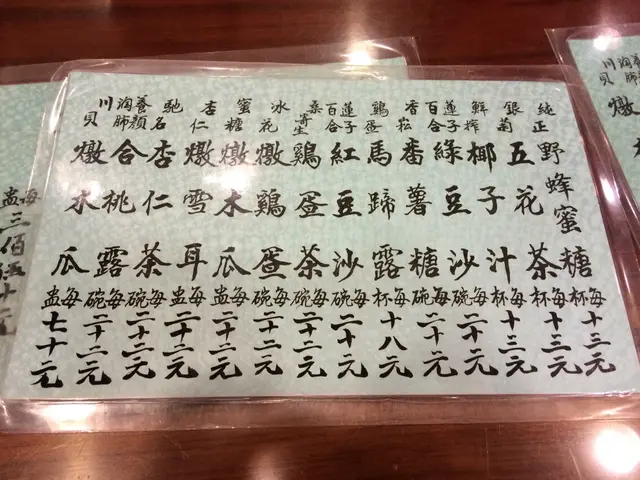 純正野蜂蜜糖每杯十三元
銀菊五花茶每杯十三元
鮮搾椰子汁每杯十三元
蓮子百合綠豆沙每碗二十元
香番薯糖每碗二十元
鷄蛋馬蹄露每杯十八元
蓮子百合紅豆沙每碗二十元
桑寄生鷄蛋茶每碗二十二元
冰花燉鷄蛋每碗二十二元
蜜糖燉木瓜每盅二十二元
杏仁燉雪耳每盅二十二元
馳名杏仁茶每碗二十二元
養顏合桃露每碗二十二元
川貝燉水瓜每盅七十元
每盅三佰伍十元
川貝燉